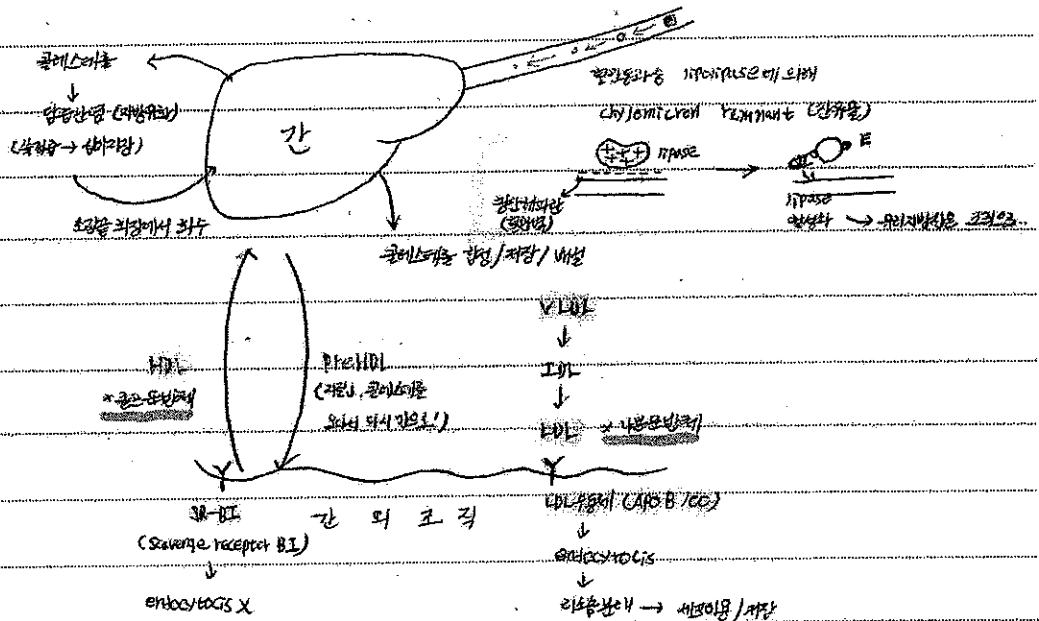 콜레스테롤
담즙산염 (지방유화)
(쓸개즙 → 십이지장)
소장끝 회장에서 회수
간
콜레스테롤 합성/저장/배설
혈액통과중 lipolipase에 의해
chylomicron remnant (잔유물)
lipase
황산헤파란
(혈관벽)
E
lipase
활성화 → 유리지방산은 조직으로..
HDL
* 좋은운반체
PreHDL
(지질, 콜레스테롤
모아서 다시 간으로!)
VLDL
IDL
LDL * 나쁜운반체
SR-BI
(scavenge receptor BI)
endocytosis X
간 외 조직
LDL수용체 (APO B 100)
endocytosis
리소좀분해 → 세포이용/저장